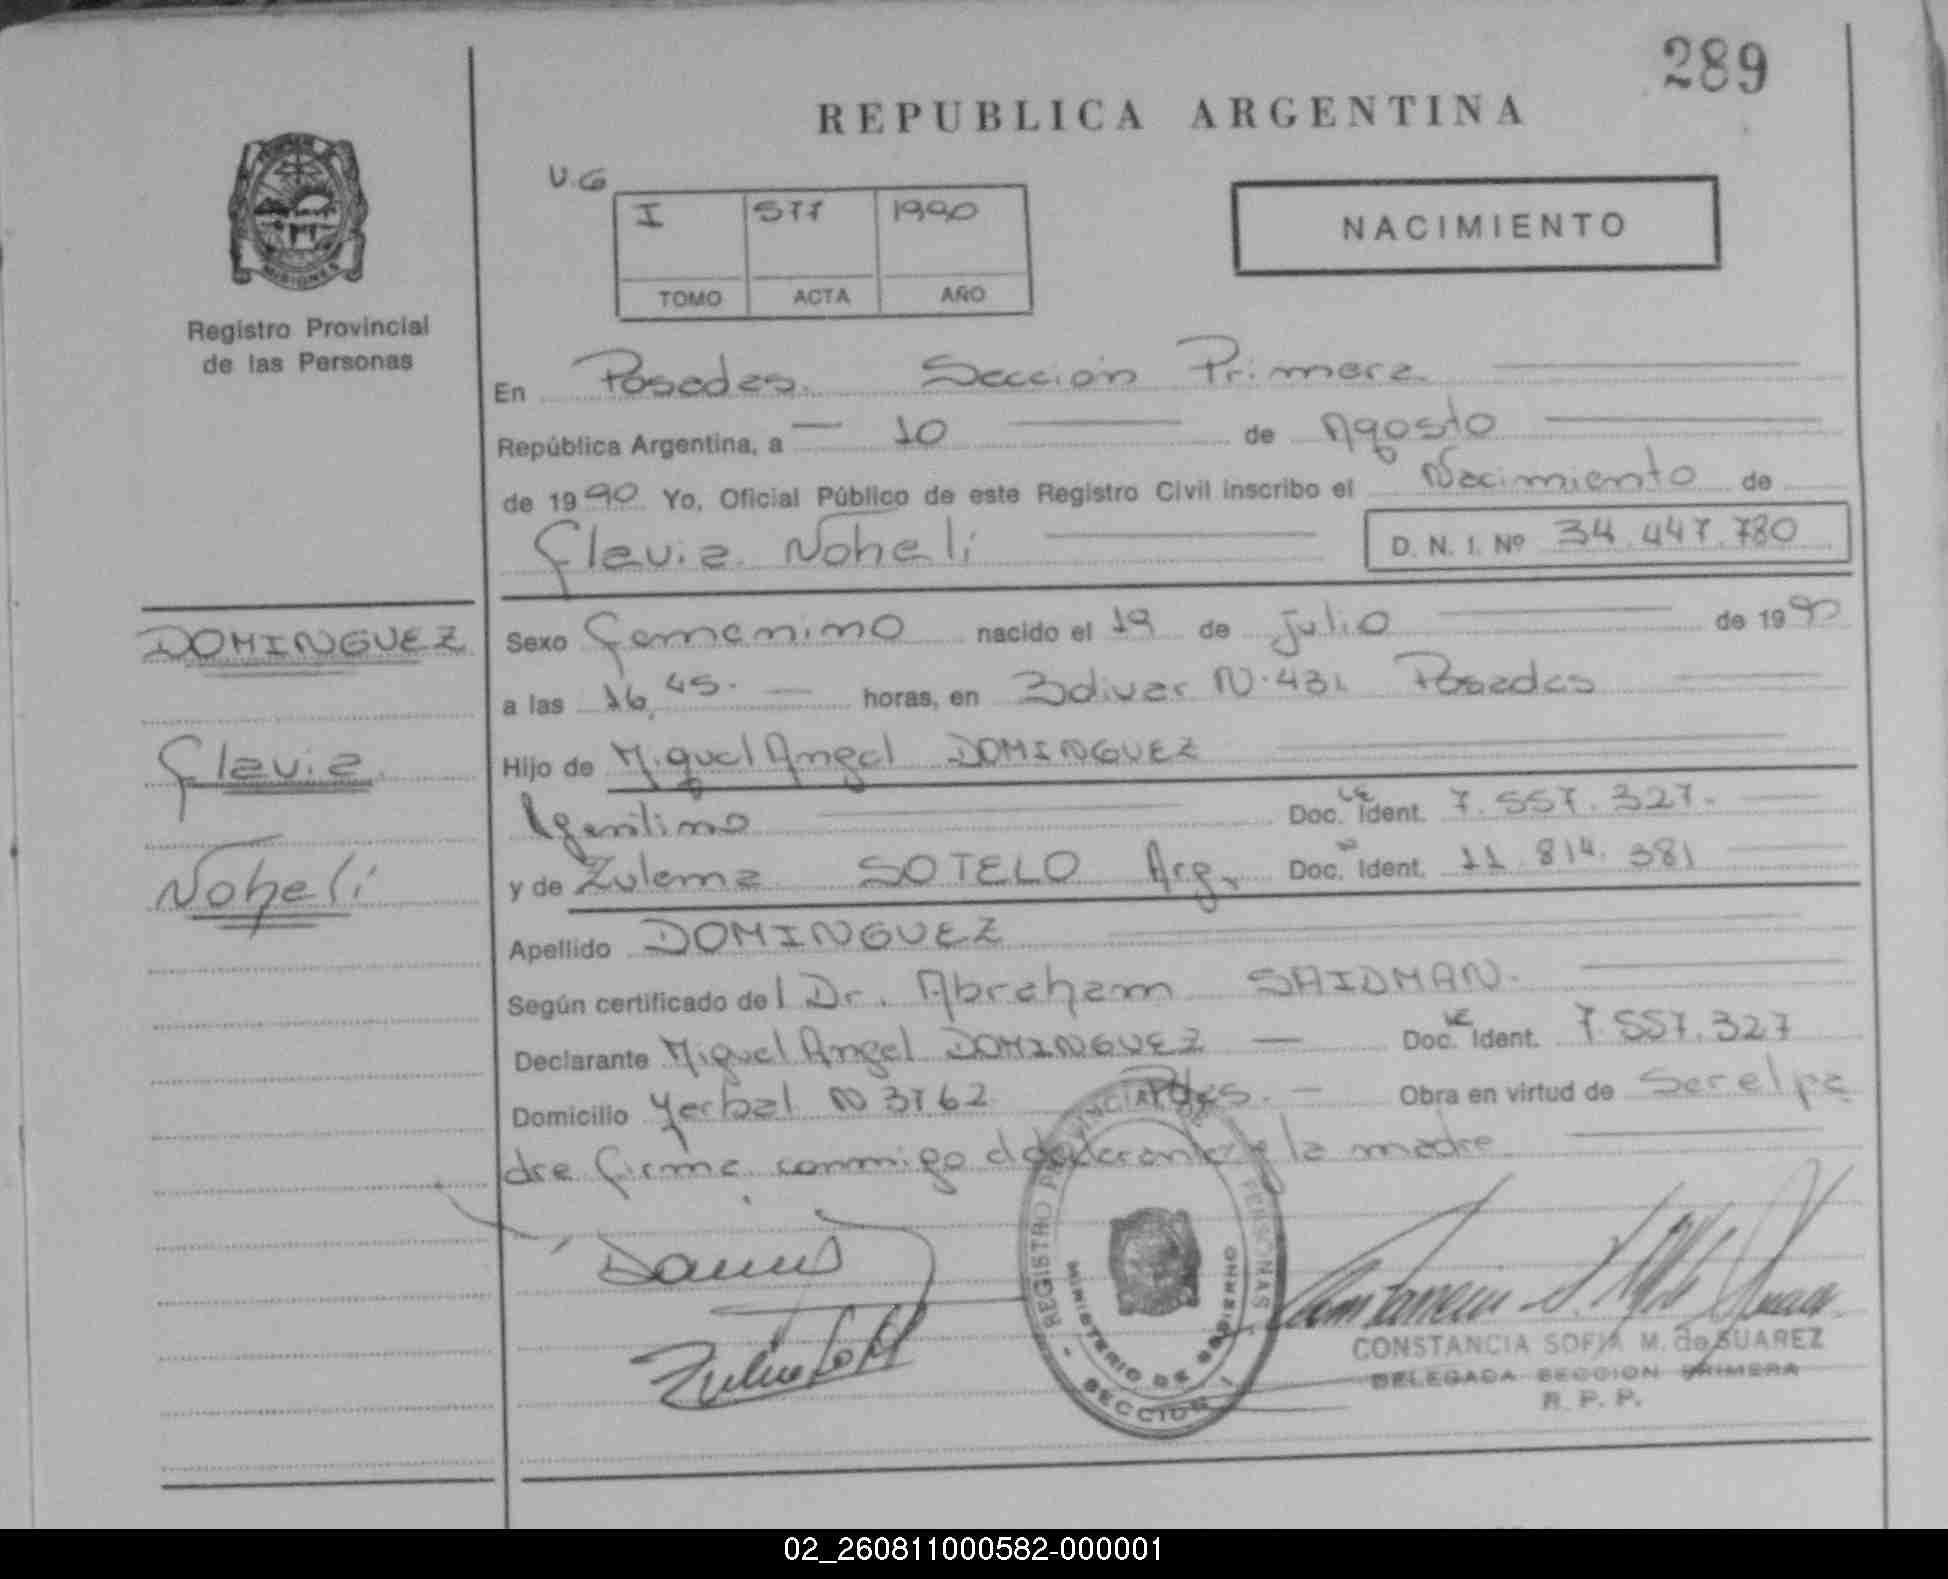 289
REPUBLICA ARGENTINA
V.G
I 577 1990
TOMO ACTA AÑO
NACIMIENTO
MISIONES
Registro Provincial
de las Personas
En Posadas. Sección Primera
República Argentina, a 10 de Agosto
de 1990 Yo, Oficial Público de este Registro Civil inscribo el Nacimiento de
Flavia Noheli D. N. I. Nº 34.447.780
DOMINGUEZ
Flavia
Noheli
Sexo Femenino nacido el 19 de julio de 1990
a las 16,45. horas, en Bolivar N.431 Posadas
Hijo de Miguel Angel DOMINGUEZ
Argentino Doc. LE Ident. 7.557.327.
y de Zulema SOTELO Arg. Doc. Ident. 11.814.381
Apellido DOMINGUEZ
Según certificado del Dr. Abraham SAIDMAN.
Declarante Miguel Angel DOMINGUEZ Doc. LE Ident. 7.557.327
Domicilio Yerbal N 3762 Pdas. Obra en virtud de Ser el pa
dre firma conmigo el declarante y la madre
REGISTRO PROVINCIAL DE LAS PERSONAS
MINISTERIO DE GOBIERNO
SECCION I
CONSTANCIA SOFIA M. de SUAREZ
DELEGADA SECCION PRIMERA
R. P. P.
02_260811000582-000001